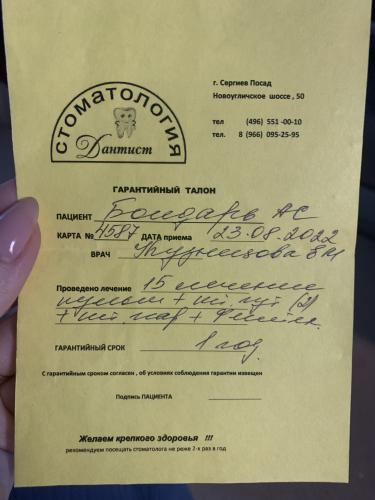 СТОМАТОЛОГИЯ
Дантист
г. Сергиев Посад
Новоугличское шоссе , 50
тел (496) 551 -00-10
тел. 8 (966) 095-25-95
ГАРАНТИЙНЫЙ ТАЛОН
ПАЦИЕНТ Бондарь АС
КАРТА № 4587 ДАТА приема 23.08.2022
ВРАЧ Кузнецова ЕМ
Проведено лечение 15 лечение
+ +
ГАРАНТИЙНЫЙ СРОК 1 год.
С гарантийным сроком согласен , об условиях соблюдения гарантии извещен
Подпись ПАЦИЕНТА
Желаем крепкого здоровья !!!
рекомендуем посещать стоматолога не реже 2-х раз в год